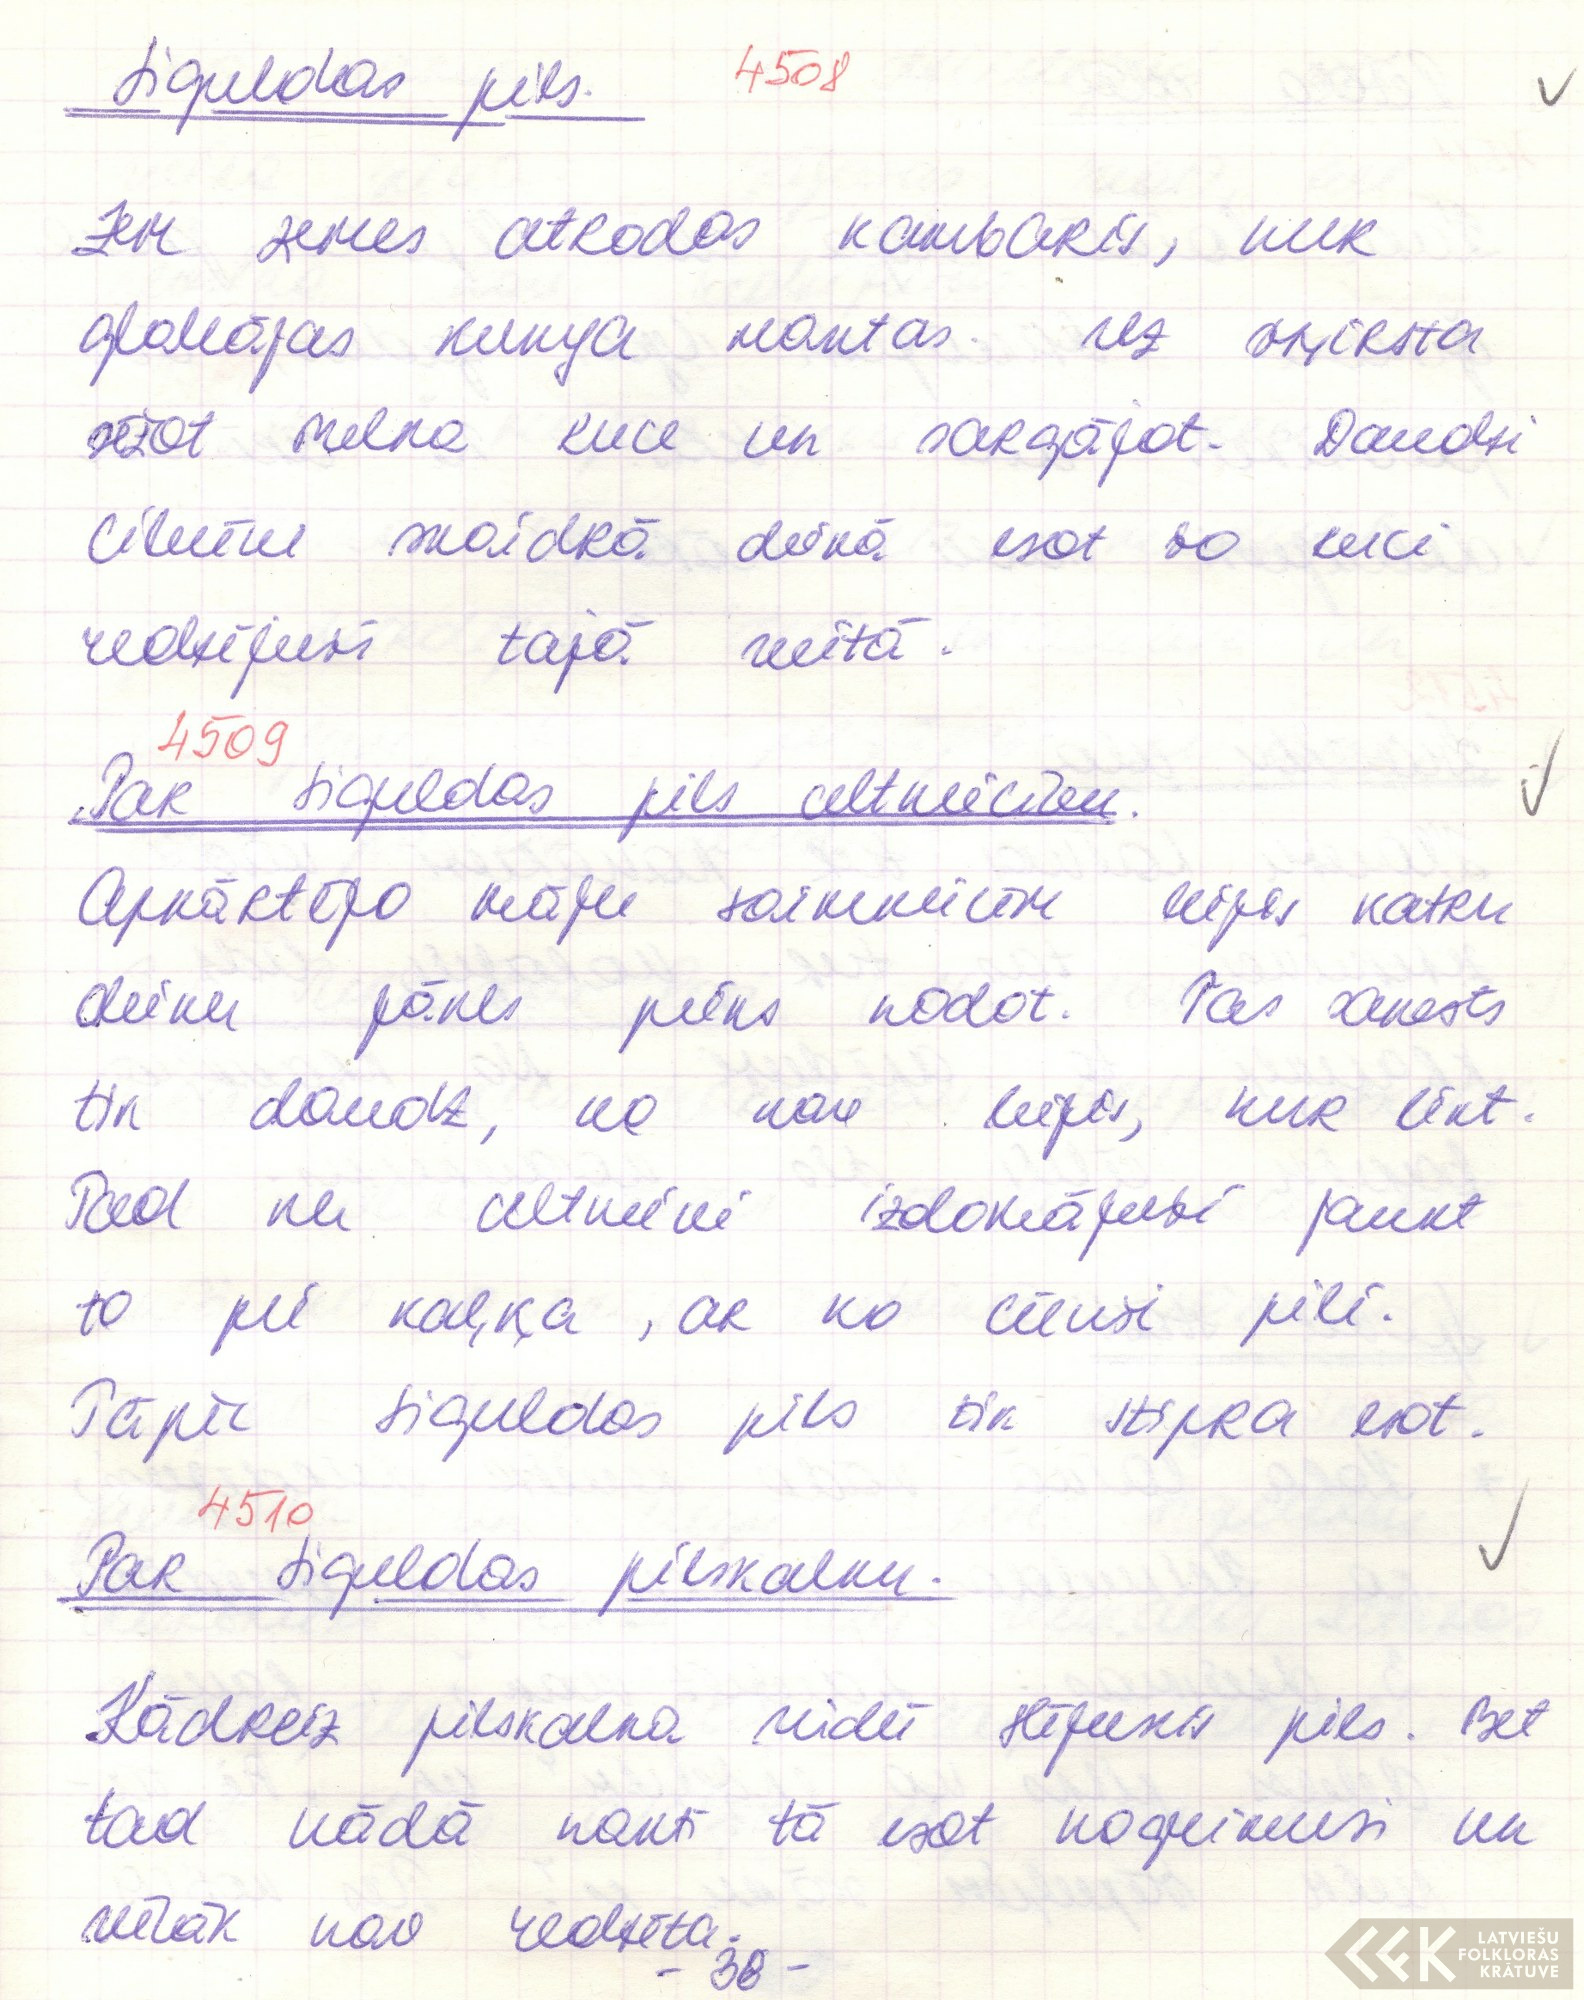 Siguldas pils. 4508
Zem zemes atrodas kambaris, kur
glabājas kunga mantas. Uz sliekšņa
sēžot melna kuce un sargājot. Daudzi
cilvēki skaidrā dienā esot šo kuci
redzējuši tajā vietā.
4509
Par Siguldas pils celtniecību.
Apkārtējo māju saimniecēm bijis katru
dienu jānes piens nodot. Tas sanests
tik daudz, ka nav bijis, kur likt.
Tad nu celtnieki izdomājuši jaukt
to pie kaļķa, ar ko cēluši pili.
Tāpēc Siguldas pils tik stipra esot.
4510
Par Siguldas pilskalnu.
Kādreiz pilskalna vidū stāvējusi pils. Bet
tad kādā naktī tā esot nogrimusi un
vairāk nav redzēta.
- 38 -
LATVIEŠU
FOLKLORAS
KRĀTUVE